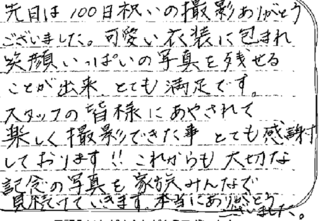 先日は100日祝いの撮影ありがとう
ございました。可愛い衣装に包まれ
笑顔いっぱいの写真を残せる
ことが出来、とても満足です。
スタッフの皆様にあやされて
楽しく撮影できた事 とても感謝
しております!! これからも大切な
記念の写真を家族みんなで
見続けていきます。本当にありがとう
ございました。